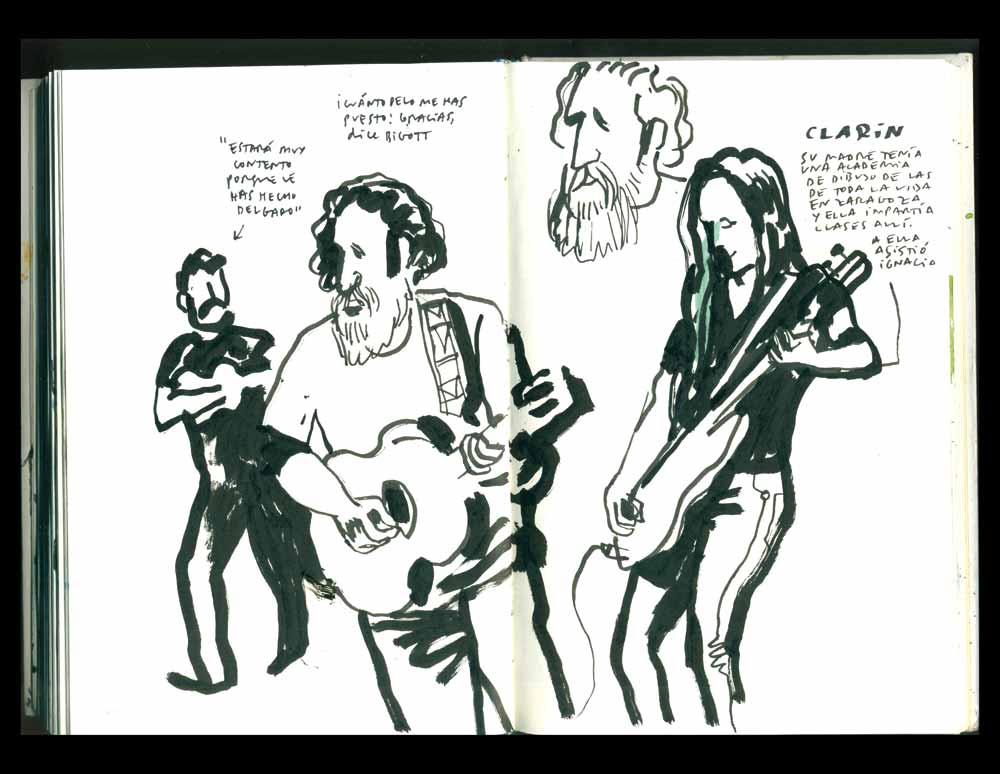 "ESTARÁ MUY
CONTENTO
PORQUE LE
HAS HECHO
DELGADO"
¡CUÁNTO PELO ME HAS
PUESTO! GRACIAS,
DICE BIGOTT
CLARÍN
SU MADRE TENÍA
UNA ACADEMIA
DE DIBUJO DE LAS
DE TODA LA VIDA
EN ZARAGOZA
Y ELLA IMPARTÍA
CLASES ALLÍ.
A ELLA
ASISTIÓ
IGNACIO